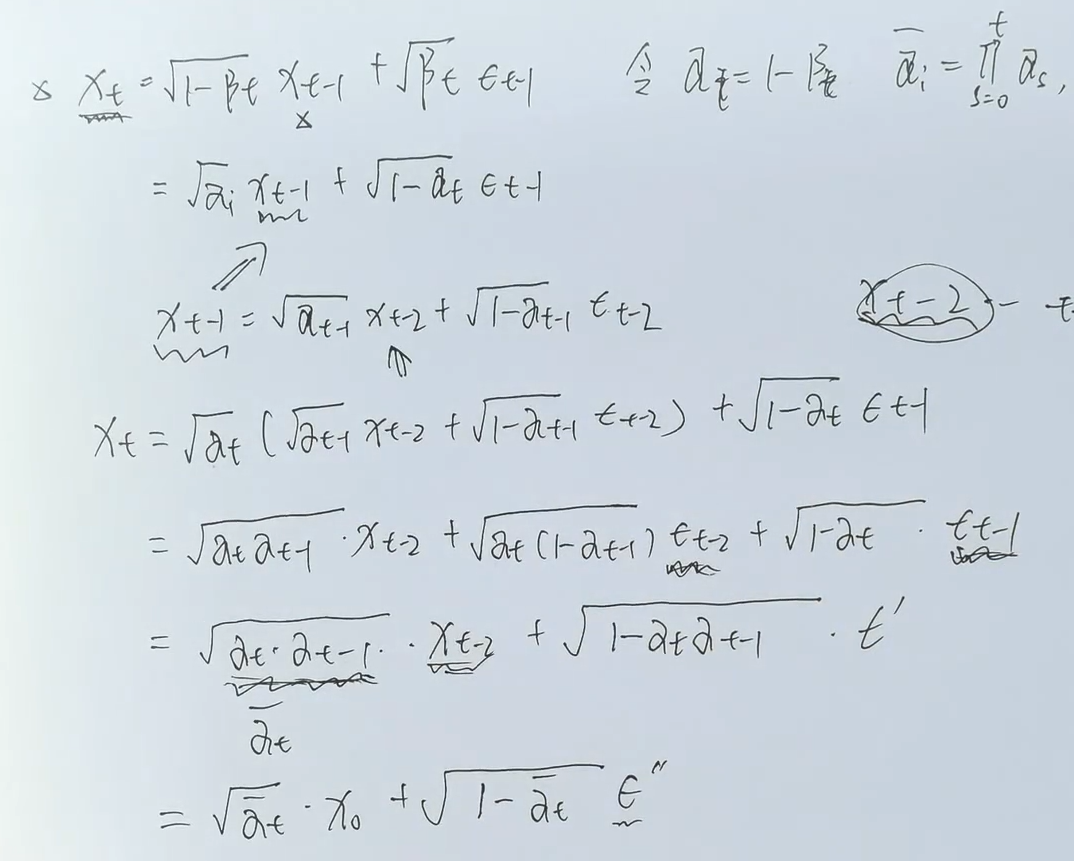 x_t = √(1-β_t) x_{t-1} + √β_t ε_{t-1} 令 α_t = 1-β_t ᾱ_i = ∏_{s=0}^{t} α_s,
= √α_i x_{t-1} + √(1-α_t) ε_{t-1}
x_{t-1} = √α_{t-1} x_{t-2} + √(1-α_{t-1}) ε_{t-2} x_{t-2} -
x_t = √α_t (√α_{t-1} x_{t-2} + √(1-α_{t-1}) ε_{t-2}) + √(1-α_t) ε_{t-1}
= √(α_t α_{t-1}) · x_{t-2} + √(α_t (1-α_{t-1})) ε_{t-2} + √(1-α_t) · ε_{t-1}
= √(α_t · α_{t-1}) · x_{t-2} + √(1-α_t α_{t-1}) · ε'
ᾱ_t
= √ᾱ_t · x_0 + √(1-ᾱ_t) ε''